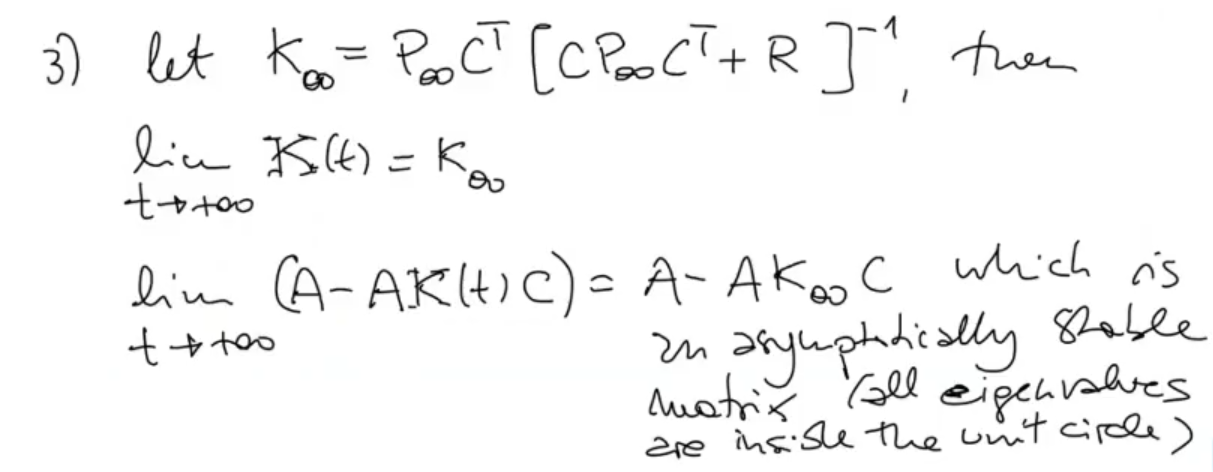 3) let K∞ = P∞Cᵀ [CP∞Cᵀ + R]⁻¹, then
lim K(t) = K∞
t→+∞
lim (A - AK(t)C) = A - AK∞C which is
t→+∞ an asymptotically stable
matrix (all eigenvalues
are inside the unit circle)